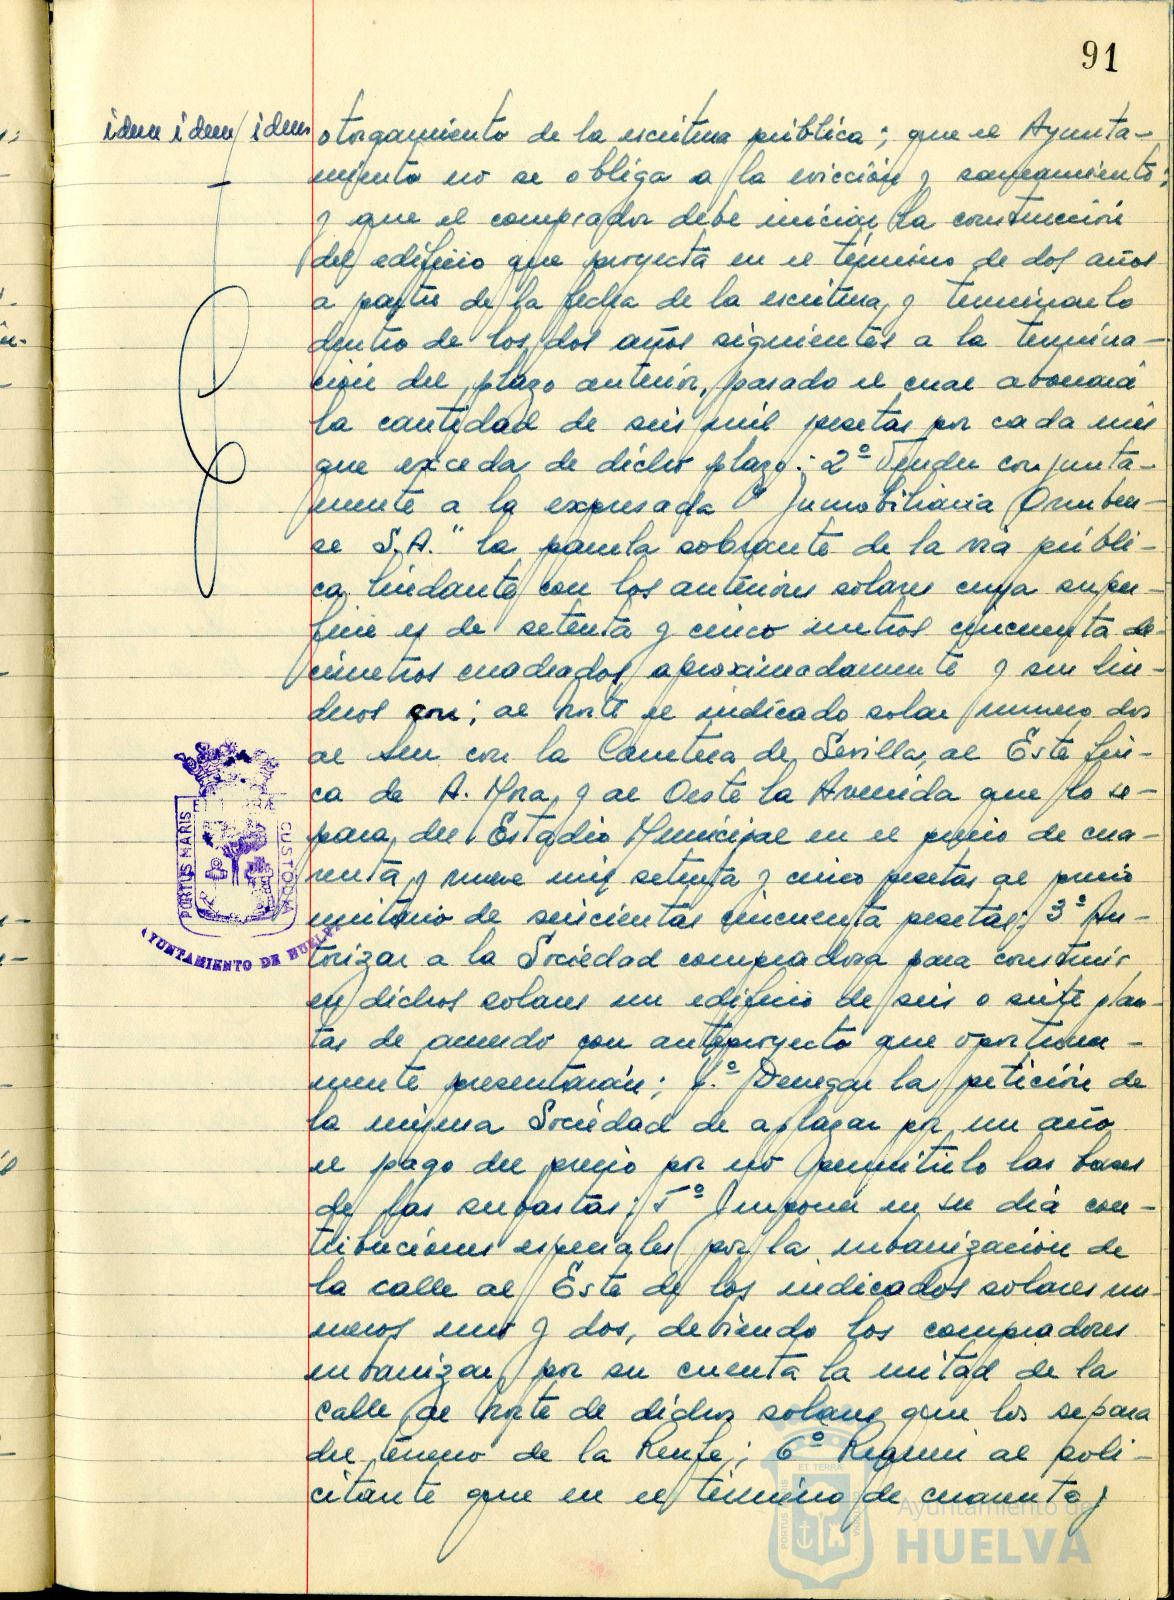 91
idem idem idem
otorgamiento de la escritura pública; que el Ayunta-
miento no se obliga a la evicción y saneamiento;
y que el comprador debe iniciar la construcción
del edificio que proyecta en el término de dos años
a partir de la fecha de la escritura, y terminarlo
dentro de los dos años siguientes a la termina-
ción del plazo anterior, pasado el cual abonará
la cantidad de seis mil pesetas por cada mes
que exceda de dicho plazo; 2º Vender conjunta-
mente a la expresada "Inmobiliaria Onuben-
se S.A." la parcela sobrante de la vía públi-
ca lindante con los anteriores solares cuya super-
ficie es de setenta y cinco metros cincuenta de-
címetros cuadrados aproximadamente y sus lin-
deros son; al Norte el indicado solar número dos
al Sur con la Carretera de Sevilla, al Este fin-
ca de A. Mora, y al Oeste la Avenida que lo se-
para del Estadio Municipal en el precio de cua-
renta y nueve mil setenta y cinco pesetas al precio
unitario de seiscientas cincuenta pesetas; 3º Au-
torizar a la Sociedad compradora para construir
en dichos solares un edificio de seis o siete plan-
tas de acuerdo con anteproyecto que oportuna-
mente presentarán; 4.º Denegar la petición de
la misma Sociedad de aplazar por un año
el pago del precio por no permitirlo las bases
de las subastas; 5º Imponer en su día con-
tribuciones especiales por la urbanización de
la calle al Este de los indicados solares nu-
meros uno y dos, debiendo los compradores
urbanizar por su cuenta la mitad de la
calle al Norte de dichos solares que los separa
del terreno de la Renfe; 6º Requerir al soli-
citante que en el término de cuarenta y
PORTUS MARIS
ET TERRÆ
CUSTODIA
AYUNTAMIENTO DE HUELVA
PORTUS MARIS
ET TERRÆ
CUSTODIA
Ayuntamiento de
HUELVA